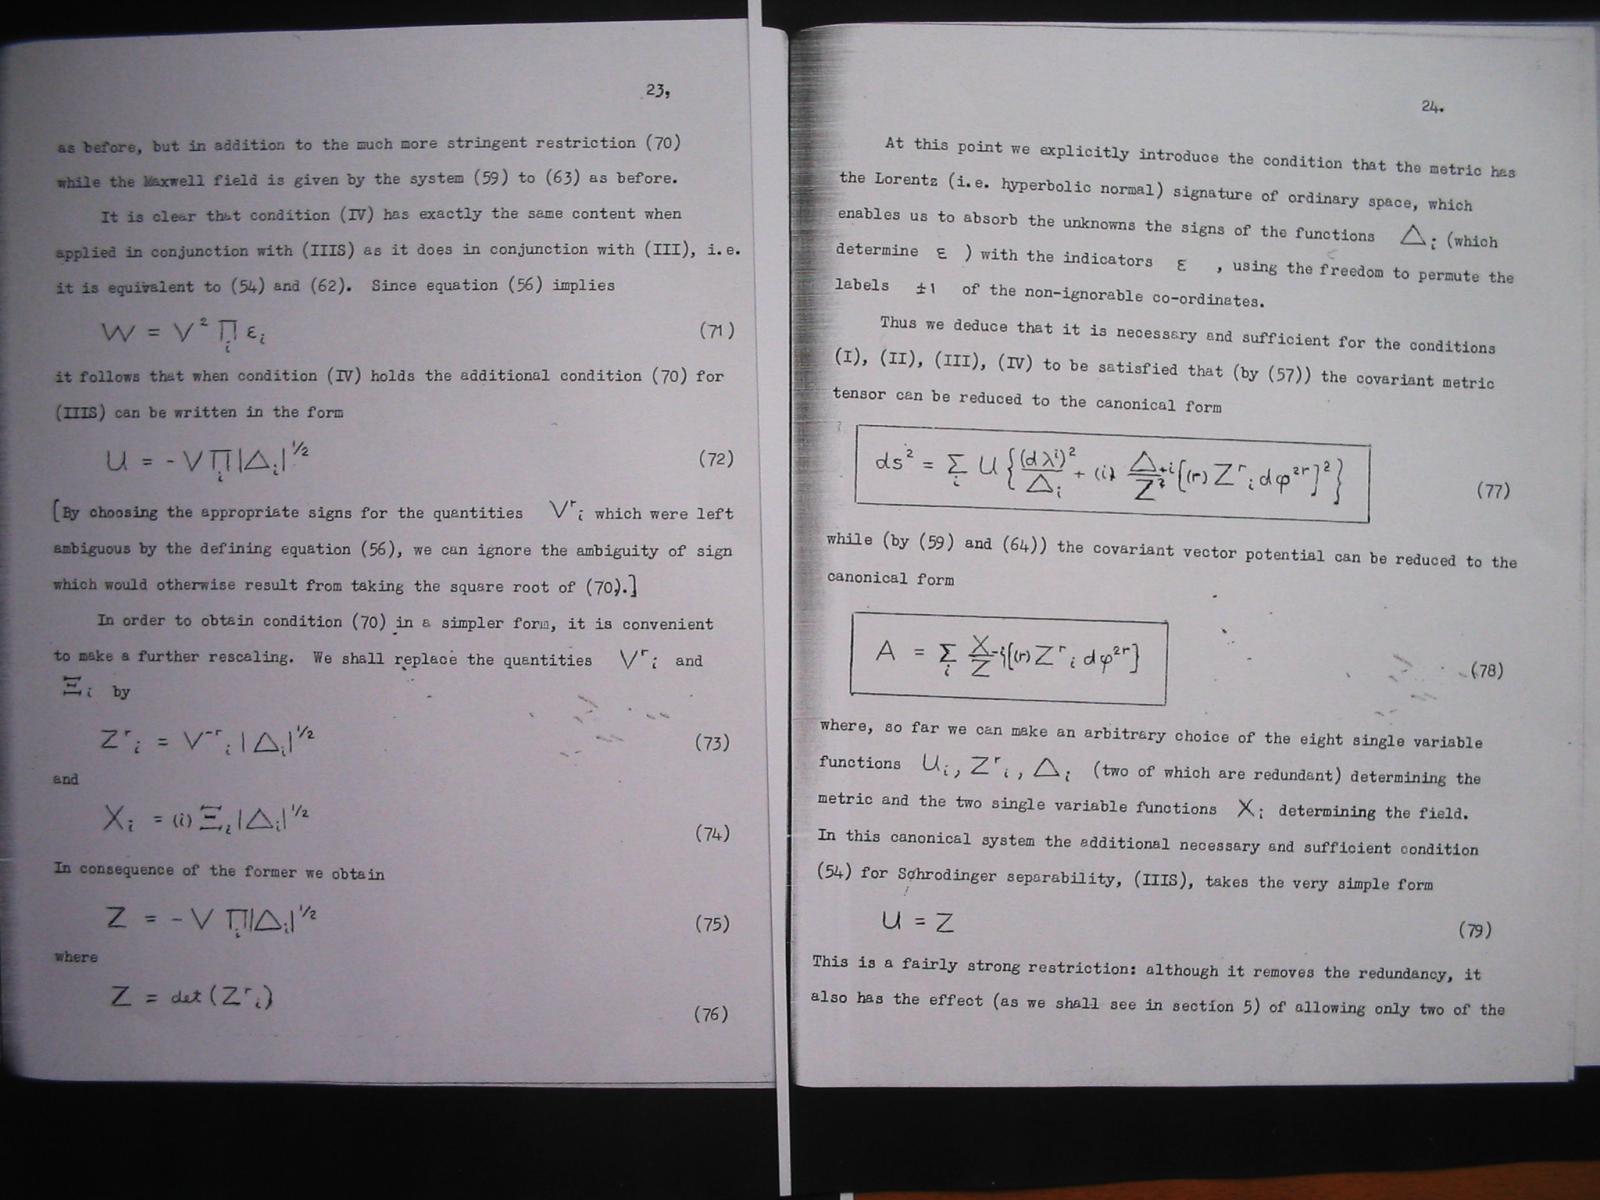 23,
as before, but in addition to the much more stringent restriction (70)
while the Maxwell field is given by the system (59) to (63) as before.
It is clear that condition (IV) has exactly the same content when
applied in conjunction with (IIIS) as it does in conjunction with (III), i.e.
it is equivalent to (54) and (62). Since equation (56) implies
W = V² ∏_i ε_i (71)
it follows that when condition (IV) holds the additional condition (70) for
(IIIS) can be written in the form
U = - V ∏_i |Δ_i|^1/2 (72)
[By choosing the appropriate signs for the quantities V^r_i which were left
ambiguous by the defining equation (56), we can ignore the ambiguity of sign
which would otherwise result from taking the square root of (70).]
In order to obtain condition (70) in a simpler form, it is convenient
to make a further rescaling. We shall replace the quantities V^r_i and
Ξ_i by
Z^r_i = V^-r_i |Δ_i|^1/2 (73)
and
X_i = (i) Ξ_i |Δ_i|^1/2 (74)
In consequence of the former we obtain
Z = - V ∏_i |Δ_i|^1/2 (75)
where
Z = det (Z^r_i) (76)
24.
At this point we explicitly introduce the condition that the metric has
the Lorentz (i.e. hyperbolic normal) signature of ordinary space, which
enables us to absorb the unknowns the signs of the functions Δ_i (which
determine ε ) with the indicators ε , using the freedom to permute the
labels ±1 of the non-ignorable co-ordinates.
Thus we deduce that it is necessary and sufficient for the conditions
(I), (II), (III), (IV) to be satisfied that (by (57)) the covariant metric
tensor can be reduced to the canonical form
ds² = Σ_i U { (dλ^i)² / Δ_i + (i) Δ_+i / Z² [(r) Z^r_i dφ^2r]² } (77)
while (by (59) and (64)) the covariant vector potential can be reduced to the
canonical form
A = Σ_i X_-i / Z [(r) Z^r_i dφ^2r] (78)
where, so far we can make an arbitrary choice of the eight single variable
functions U_i, Z^r_i, Δ_i (two of which are redundant) determining the
metric and the two single variable functions X_i determining the field.
In this canonical system the additional necessary and sufficient condition
(54) for Schrodinger separability, (IIIS), takes the very simple form
U = Z (79)
This is a fairly strong restriction: although it removes the redundancy, it
also has the effect (as we shall see in section 5) of allowing only two of the